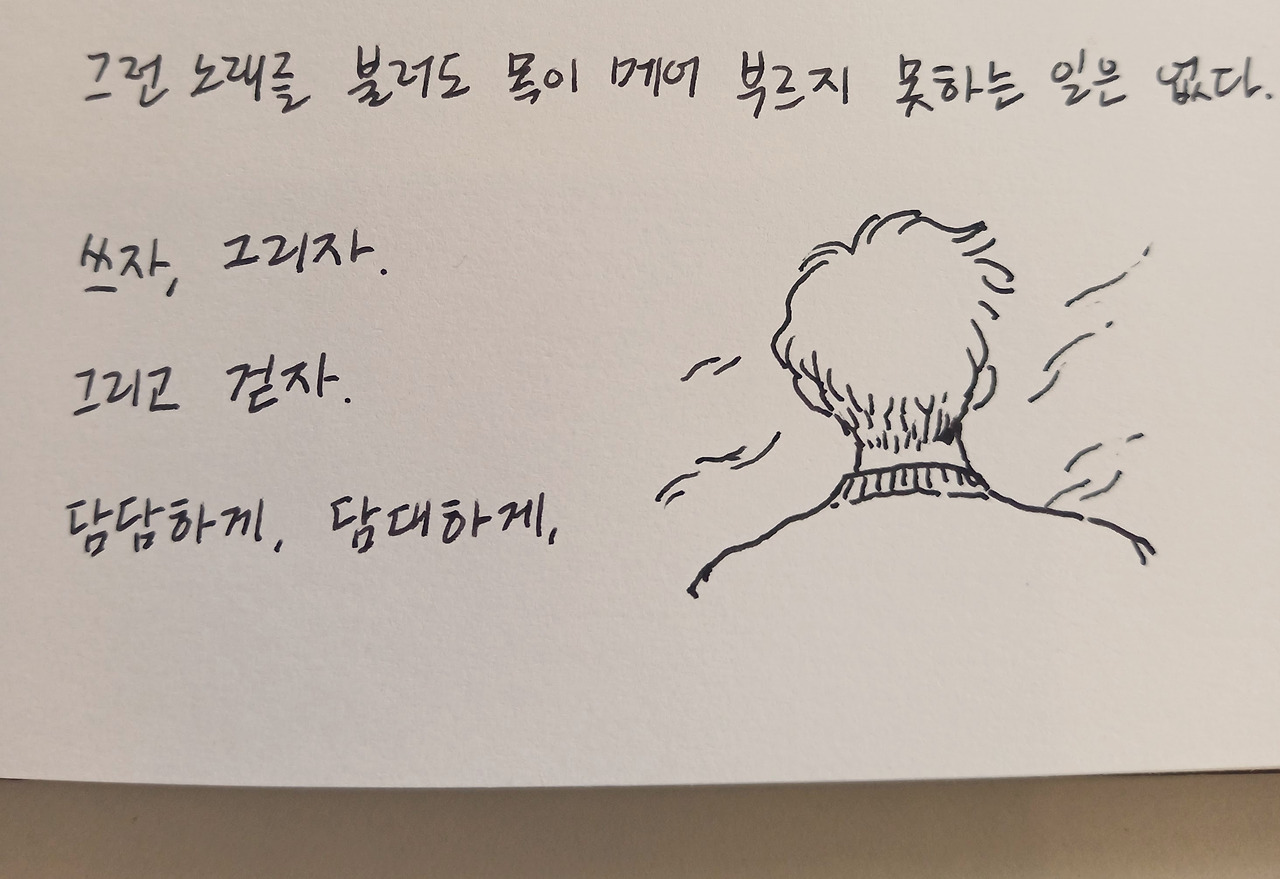 그런 노래를 불러도 목이 메어 부르지 못하는 일은 없다.
쓰자, 그리자.
그리고 걷자.
담담하게, 담대하게,